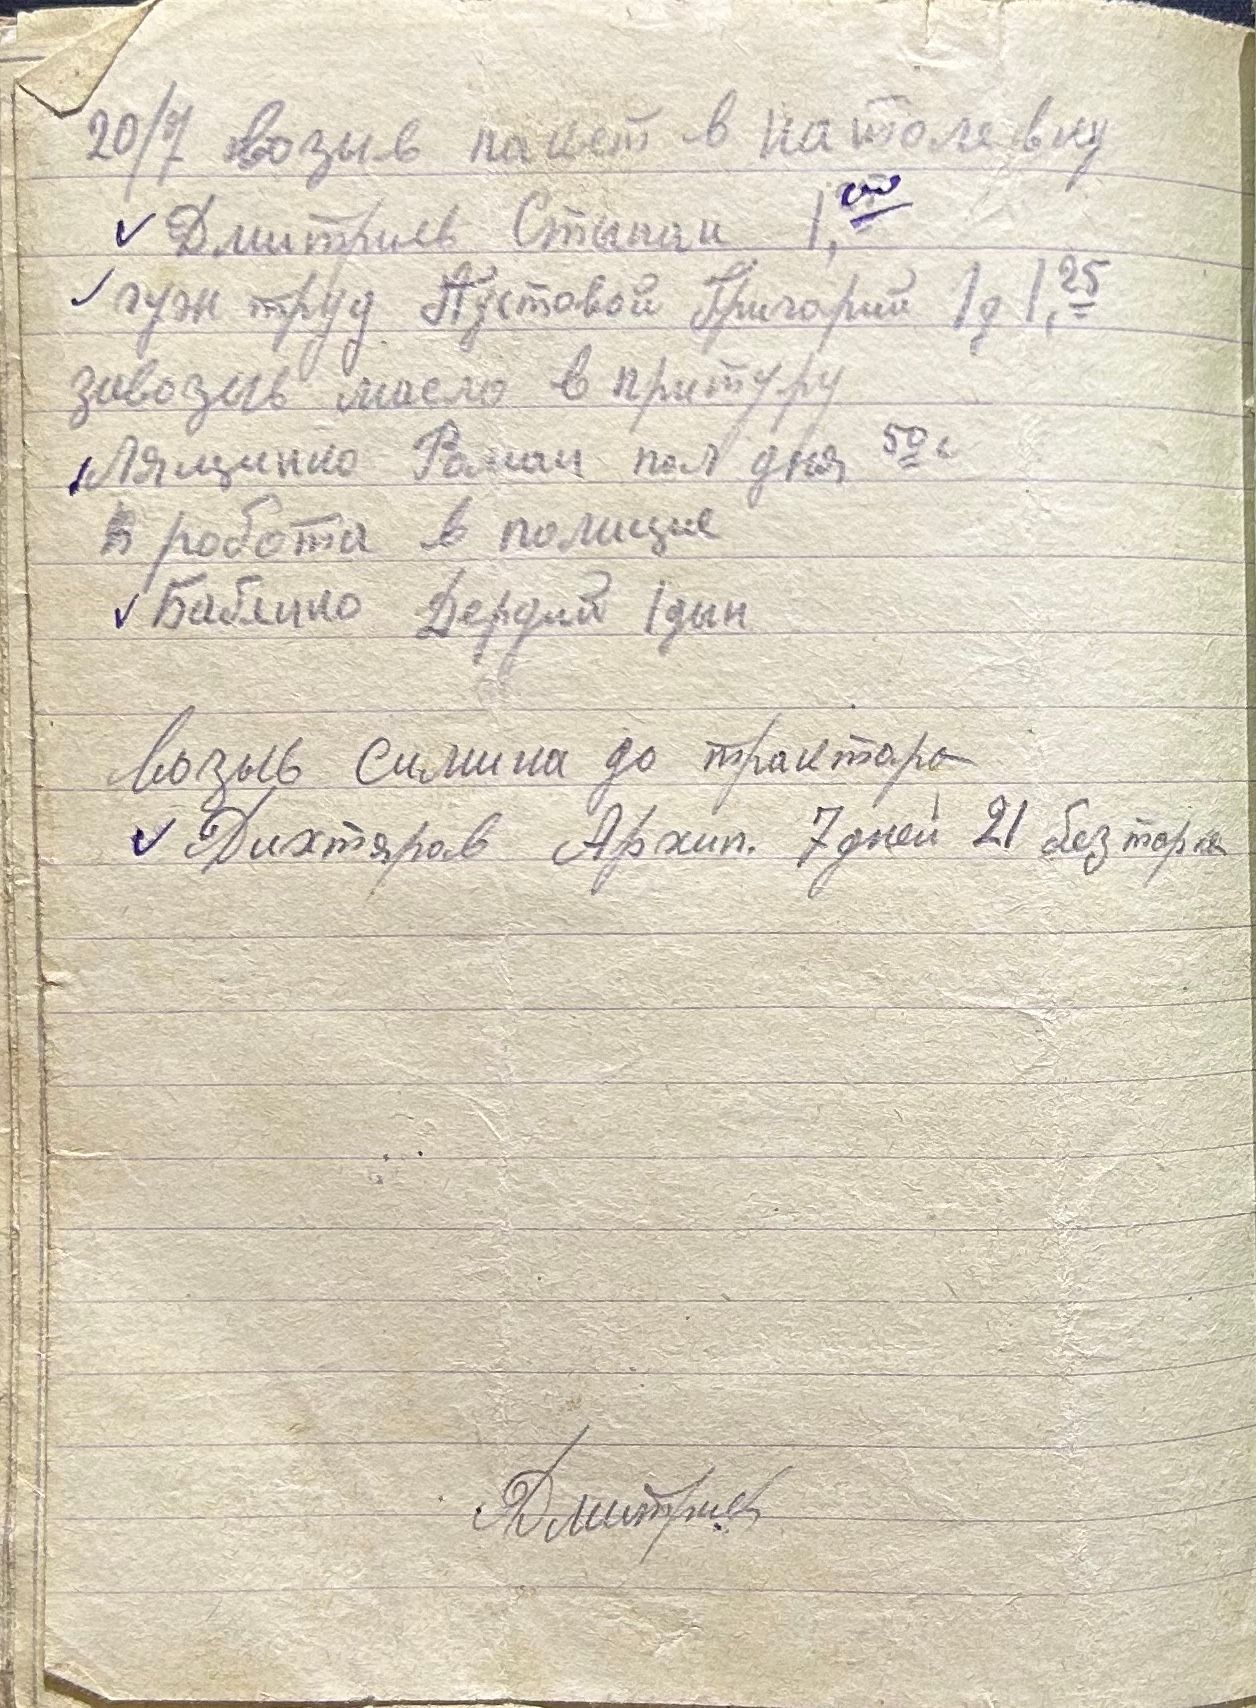 20/7 возыв пакет в Натолевку
✓ Дмитриев Стыпан 1,00
✓ гуж труд Пустовой Григорий 1д 1,25
завозыв масло в притуру
Лящинко Роман пол дня 50
робота в полицие
✓ Баблико 1 дын
возыв симина до трактора
✓ Дихтяров Архип. 7 дней 21
Дмитриев